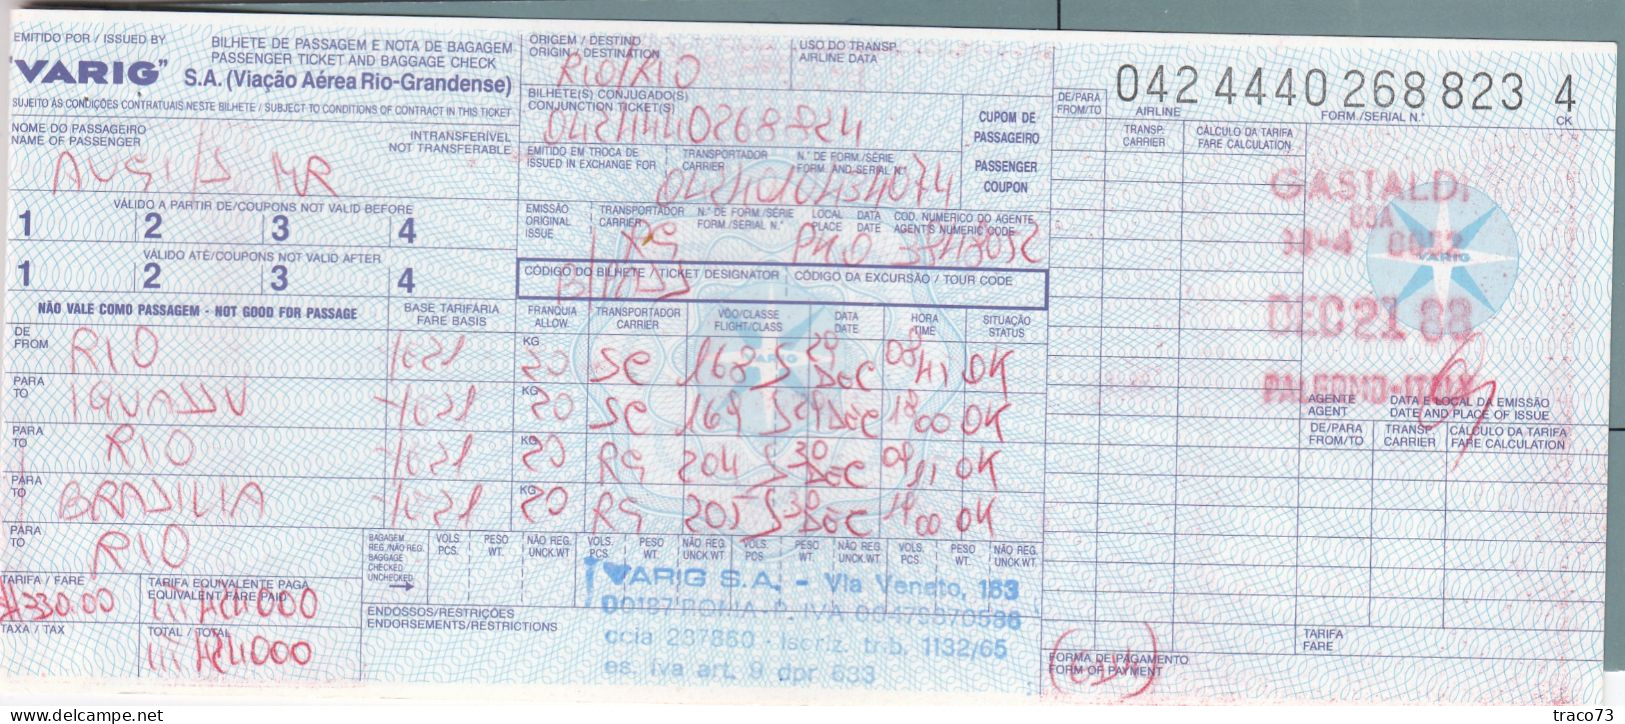 EMITIDO POR / ISSUED BY
"VARIG"
BILHETE DE PASSAGEM E NOTA DE BAGAGEM
PASSENGER TICKET AND BAGGAGE CHECK
S.A. (Viação Aérea Rio-Grandense)
SUJEITO ÀS CONDIÇÕES CONTRATUAIS NESTE BILHETE / SUBJECT TO CONDITIONS OF CONTRACT IN THIS TICKET
NOME DO PASSAGEIRO
NAME OF PASSENGER
INTRANSFERÍVEL
NOT TRANSFERABLE
MR
VÁLIDO A PARTIR DE/COUPONS NOT VALID BEFORE
1 2 3 4
VÁLIDO ATÉ/COUPONS NOT VALID AFTER
1 2 3 4
ORIGEM / DESTINO
ORIGIN / DESTINATION
RIO/RIO
USO DO TRANSP.
AIRLINE DATA
BILHETE(S) CONJUGADO(S)
CONJUNCTION TICKET(S)
0424440268824
EMITIDO EM TROCA DE
ISSUED IN EXCHANGE FOR
TRANSPORTADOR
CARRIER
N.º DE FORM./SÉRIE
FORM AND SERIAL N.º
CUPOM DE
PASSAGEIRO
PASSENGER
COUPON
EMISSÃO
ORIGINAL
ISSUE
TRANSPORTADOR
CARRIER
N.º DE FORM./SÉRIE
FORM./SERIAL N.º
LOCAL
PLACE
DATA
DATE
COD. NUMERICO DO AGENTE
AGENT'S NUMERIC CODE
RG
CÓDIGO DO BILHETE / TICKET DESIGNATOR
CÓDIGO DA EXCURSÃO / TOUR CODE
NÃO VALE COMO PASSAGEM - NOT GOOD FOR PASSAGE
BASE TARIFÁRIA
FARE BASIS
FRANQUIA
ALLOW.
TRANSPORTADOR
CARRIER
VÔO/CLASSE
FLIGHT/CLASS
DATA
DATE
HORA
TIME
SITUAÇÃO
STATUS
DE
FROM
RIO
KG
20 SC 168 S DEC OK
PARA
TO
IGUASSU
KG
20 SC 169 S 29 DEC 1800 OK
PARA
TO
RIO
KG
20 RG 204 S 30 DEC 0911 OK
PARA
TO
BRASILIA
KG
20 RG 205 S 30 DEC 1900 OK
PARA
TO
RIO
BAGAGEM
REG./NÃO REG.
BAGGAGE
CHECKED
UNCHECKED
VOLS.
PCS.
PESO
WT.
NÃO REG.
UNCK.WT
VOLS.
PCS.
PESO
WT.
NÃO REG.
UNCK.WT
VOLS.
PCS.
PESO
WT.
NÃO REG.
UNCK.WT
VOLS.
PCS.
PESO
WT.
NÃO REG.
UNCK.WT
TARIFA / FARE
330.00
TARIFA EQUIVALENTE PAGA
EQUIVALENT FARE PAID
TAXA / TAX
TOTAL / TOTAL
ENDOSSOS/RESTRIÇÕES
ENDORSEMENTS/RESTRICTIONS
VARIG S.A. - Via Veneto, 183
00187 ROMA - P. IVA 00478870586
ccia 237860 - Iscr.z. trib. 1132/65
es. iva art. 9 dpr 633
DE/PARA
FROM/TO
042 4440 268 823 4
AIRLINE
FORM./SERIAL N.º
CK
TRANSP.
CARRIER
CÁLCULO DA TARIFA
FARE CALCULATION
GASTALDI
VARIG
DEC 21 88
PALERMO-ITALY
AGENTE
AGENT
DATA E LOCAL DA EMISSÃO
DATE AND PLACE OF ISSUE
DE/PARA
FROM/TO
TRANSP.
CARRIER
CÁLCULO DA TARIFA
FARE CALCULATION
TARIFA
FARE
FORMA DE PAGAMENTO
FORM OF PAYMENT
www.delcampe.net
traco73